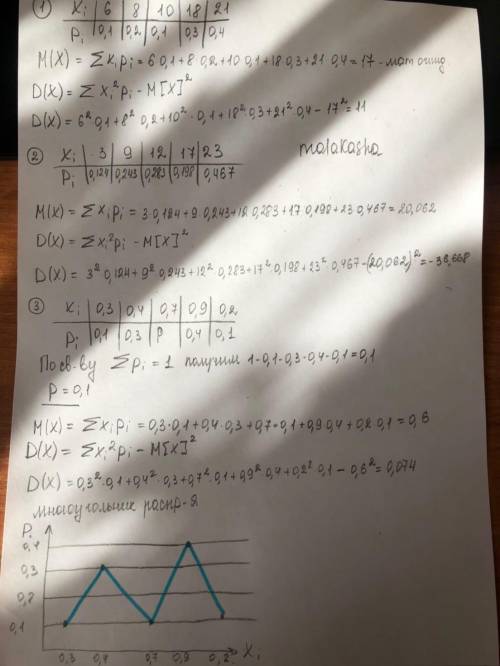 ① Xi | 6 | 8 | 10 | 18 | 21
Pi | 0,1 | 0,2 | 0,1 | 0,3 | 0,4
M(X) = ∑ xi pi = 6·0,1+8·0,2+10·0,1+18·0,3+21·0,4 = 17 - мат ожид.
D(X) = ∑ xi² pi - M[X]²
D(X) = 6²·0,1+8²·0,2+10²·0,1+18²·0,3+21²·0,4-17² = 11
② Xi | 3 | 9 | 12 | 17 | 23
malakasha
Pi | 0,124 | 0,243 | 0,283 | 0,198 | 0,467
M(X) = ∑ xi pi = 3·0,124+9·0,243+12·0,283+17·0,198+23·0,467 = 20,062
D(X) = ∑ xi² pi - M[X]²
D(X) = 3²·0,124+9²·0,243+12²·0,283+17²·0,198+23²·0,467-(20,062)² = -36,668
③ Xi | 0,3 | 0,4 | 0,7 | 0,9 | 0,2
Pi | 0,1 | 0,3 | P | 0,4 | 0,1
По св-ву ∑ pi = 1 получим 1-0,1-0,3-0,4-0,1 = 0,1
P = 0,1
M(X) = ∑ xi pi = 0,3·0,1+0,4·0,3+0,7·0,1+0,9·0,4+0,2·0,1 = 0,6
D(X) = ∑ xi² pi - M[X]²
D(X) = 0,3²·0,1+0,4²·0,3+0,7²·0,1+0,9²·0,4+0,2²·0,1-0,6² = 0,074
многоугольник распр-я
Pi
0,4
0,3
0,2
0,1
0,3 0,4 0,7 0,9 0,2 Xi